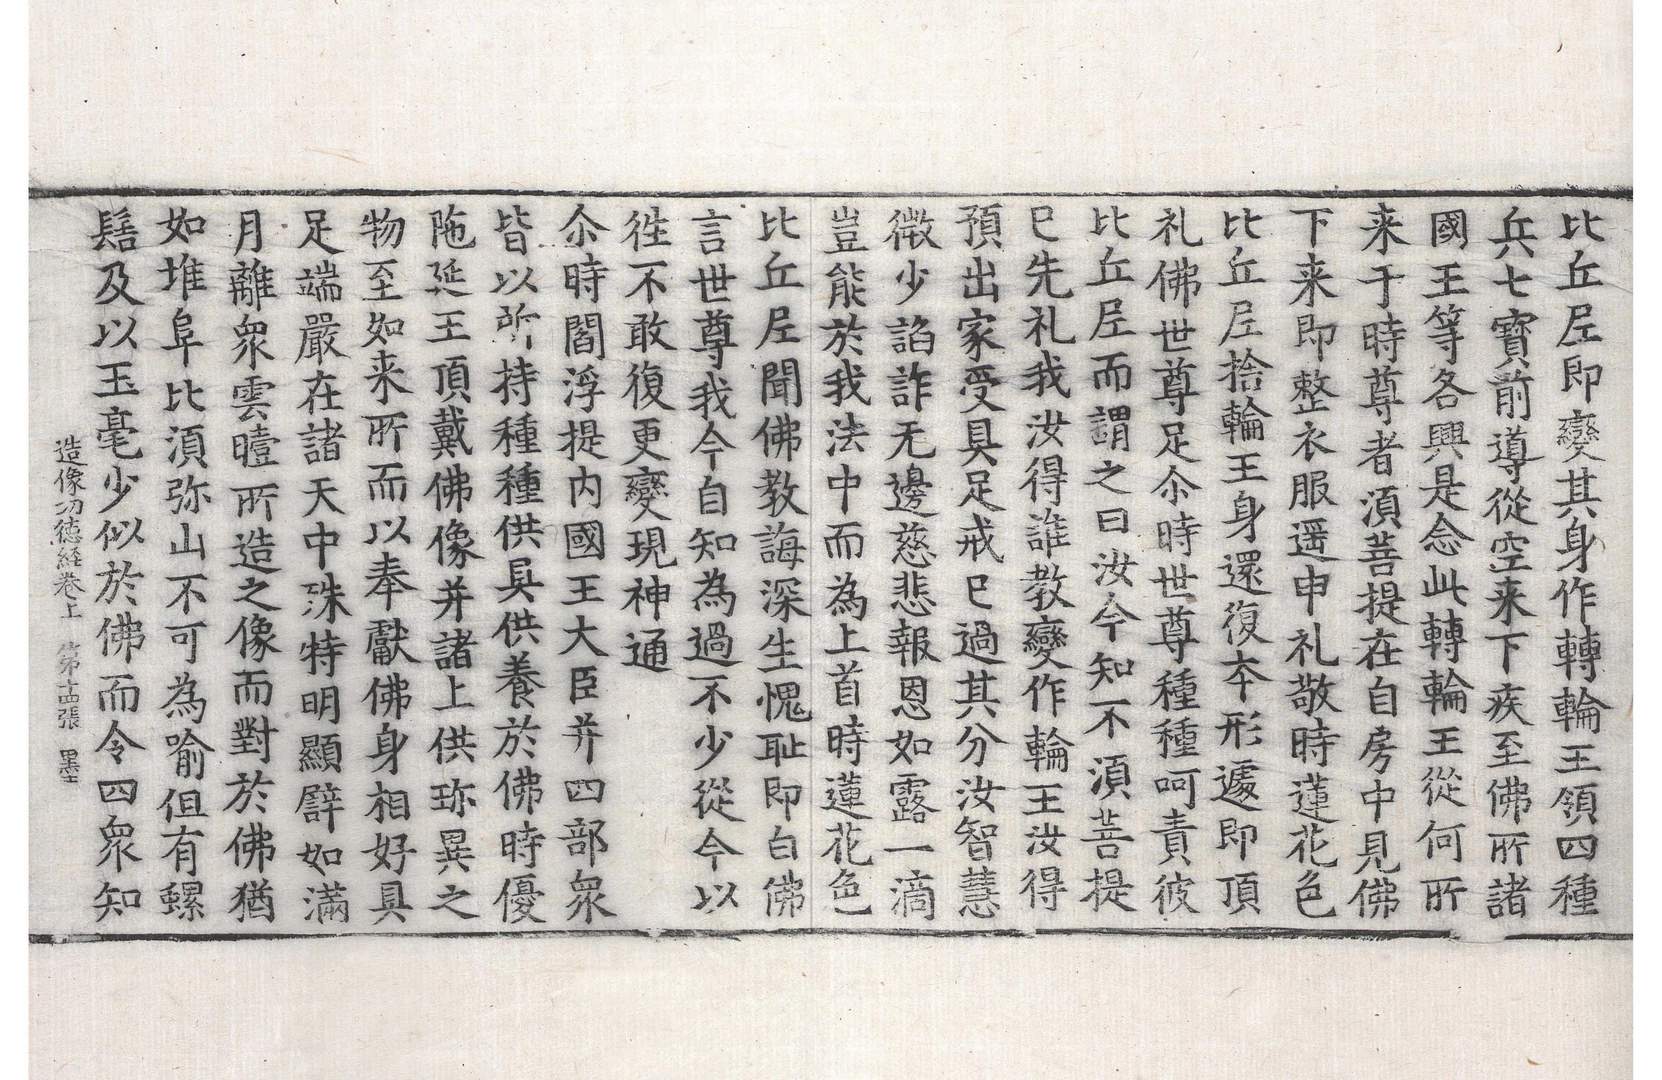 比丘尼即變其身作轉輪王領四種
兵七寶前導從空来下疾至佛所諸
國王等各興是念此轉輪王從何所
来于時尊者湏菩提在自房中見佛
下来即整衣服遥申礼敬時蓮花色
比丘尼捨輪王身還復夲形遽即頂
礼佛世尊足尒時世尊種種呵責彼
比丘尼而謂之曰汝今知不湏菩提
巳先礼我汝得誰教變作輪王汝得
預出家受具足戒巳過其分汝智慧
微少諂詐无邊慈悲報恩如露一滴
豈能於我法中而為上首時蓮花色
比丘尼聞佛教誨深生愧耻即白佛
言世尊我今自知為過不少從今以
徃不敢復更變現神通
尒時閻浮提内國王大臣并四部衆
皆以所持種種供具供養於佛時優
陁延王頂戴佛像并諸上供珎異之
物至如来所而以奉獻佛身相好具
足端嚴在諸天中殊特明顯譬如滿
月離衆雲曀所造之像而對於佛猶
如堆阜比湏弥山不可為喻但有螺
髻及以玉毫少似於佛而令四衆知
造像功德経卷上　第十四張　墨